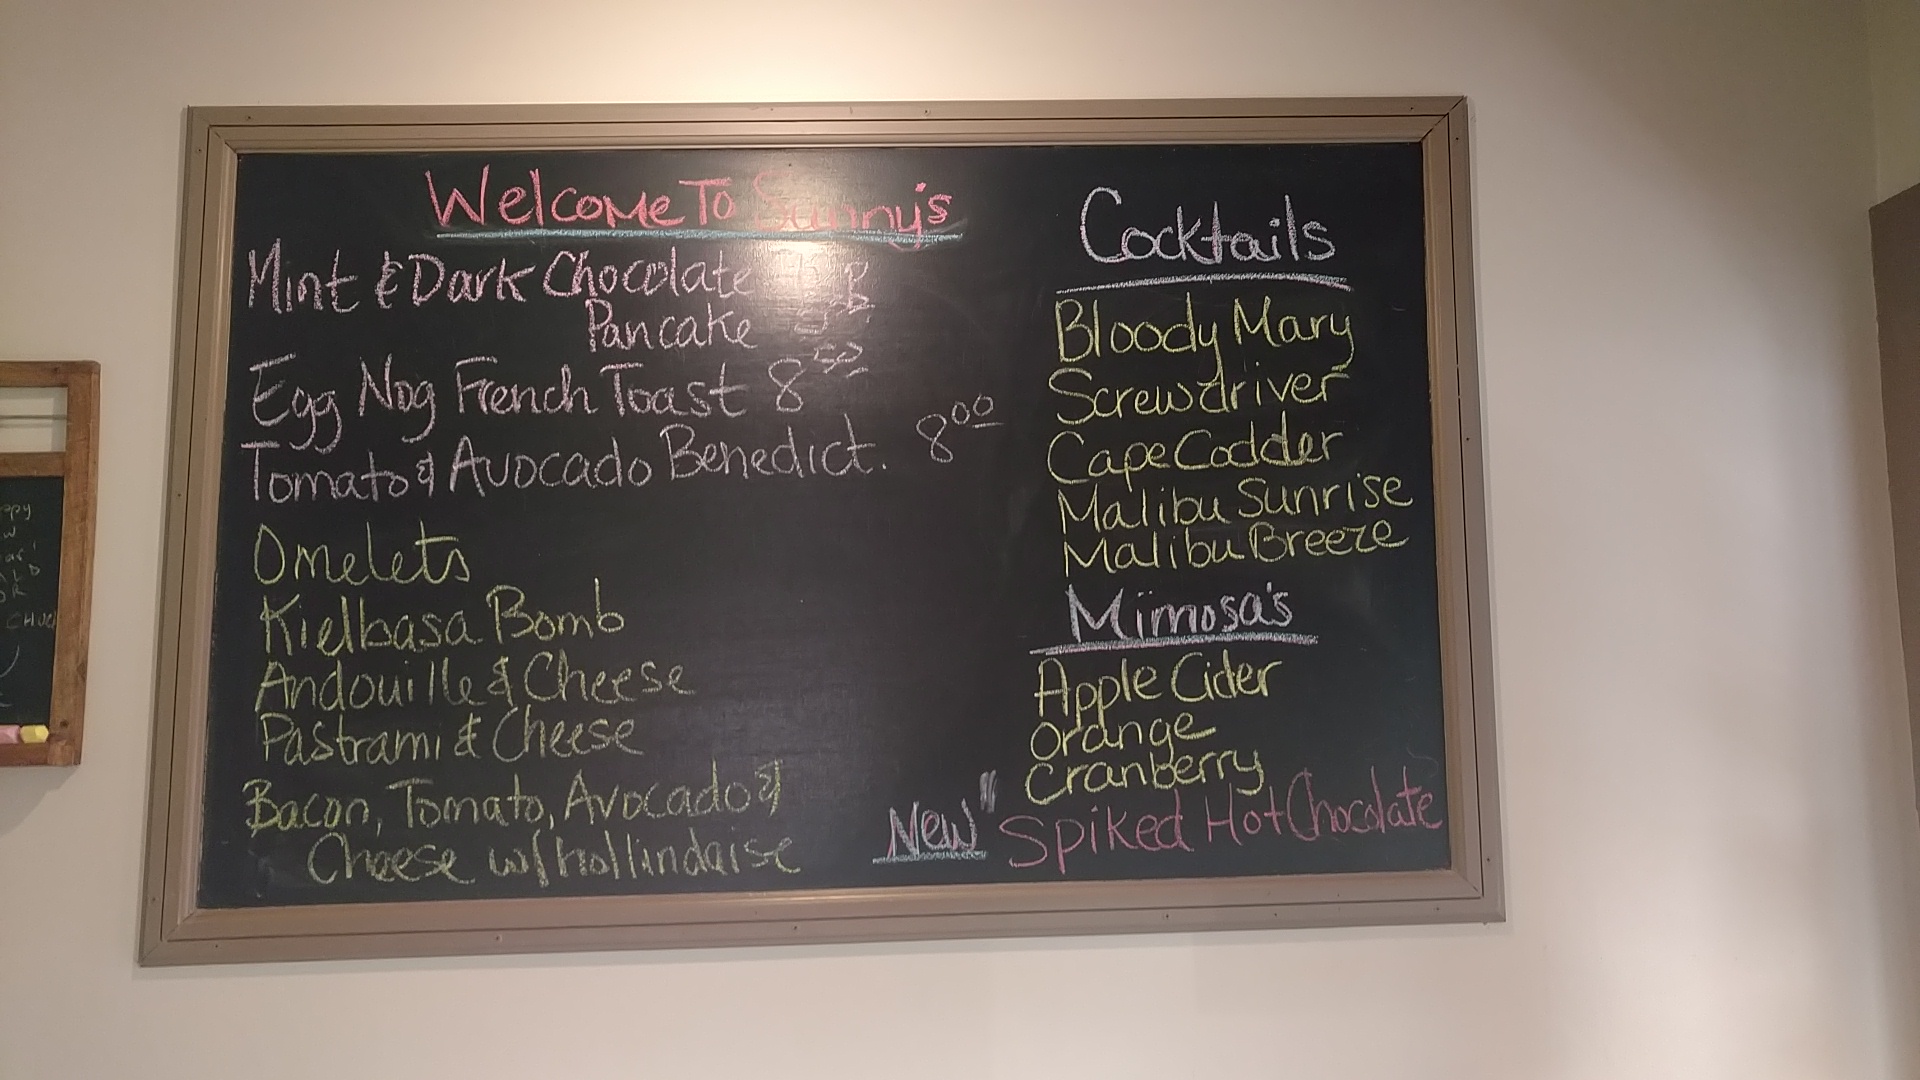 Welcome To Sunny's
Mint & Dark Chocolate Chip
Pancake
Egg Nog French Toast 8⁵⁰
Tomato & Avocado Benedict. 8⁰⁰
Omelets
Kielbasa Bomb
Andouille & Cheese
Pastrami & Cheese
Bacon, Tomato, Avocado &
Cheese w/ Hollindaise
Cocktails
Bloody Mary
Screwdriver
Cape Codder
Malibu Sunrise
Malibu Breeze
Mimosa's
Apple Cider
Orange
Cranberry
New" Spiked Hot Chocolate